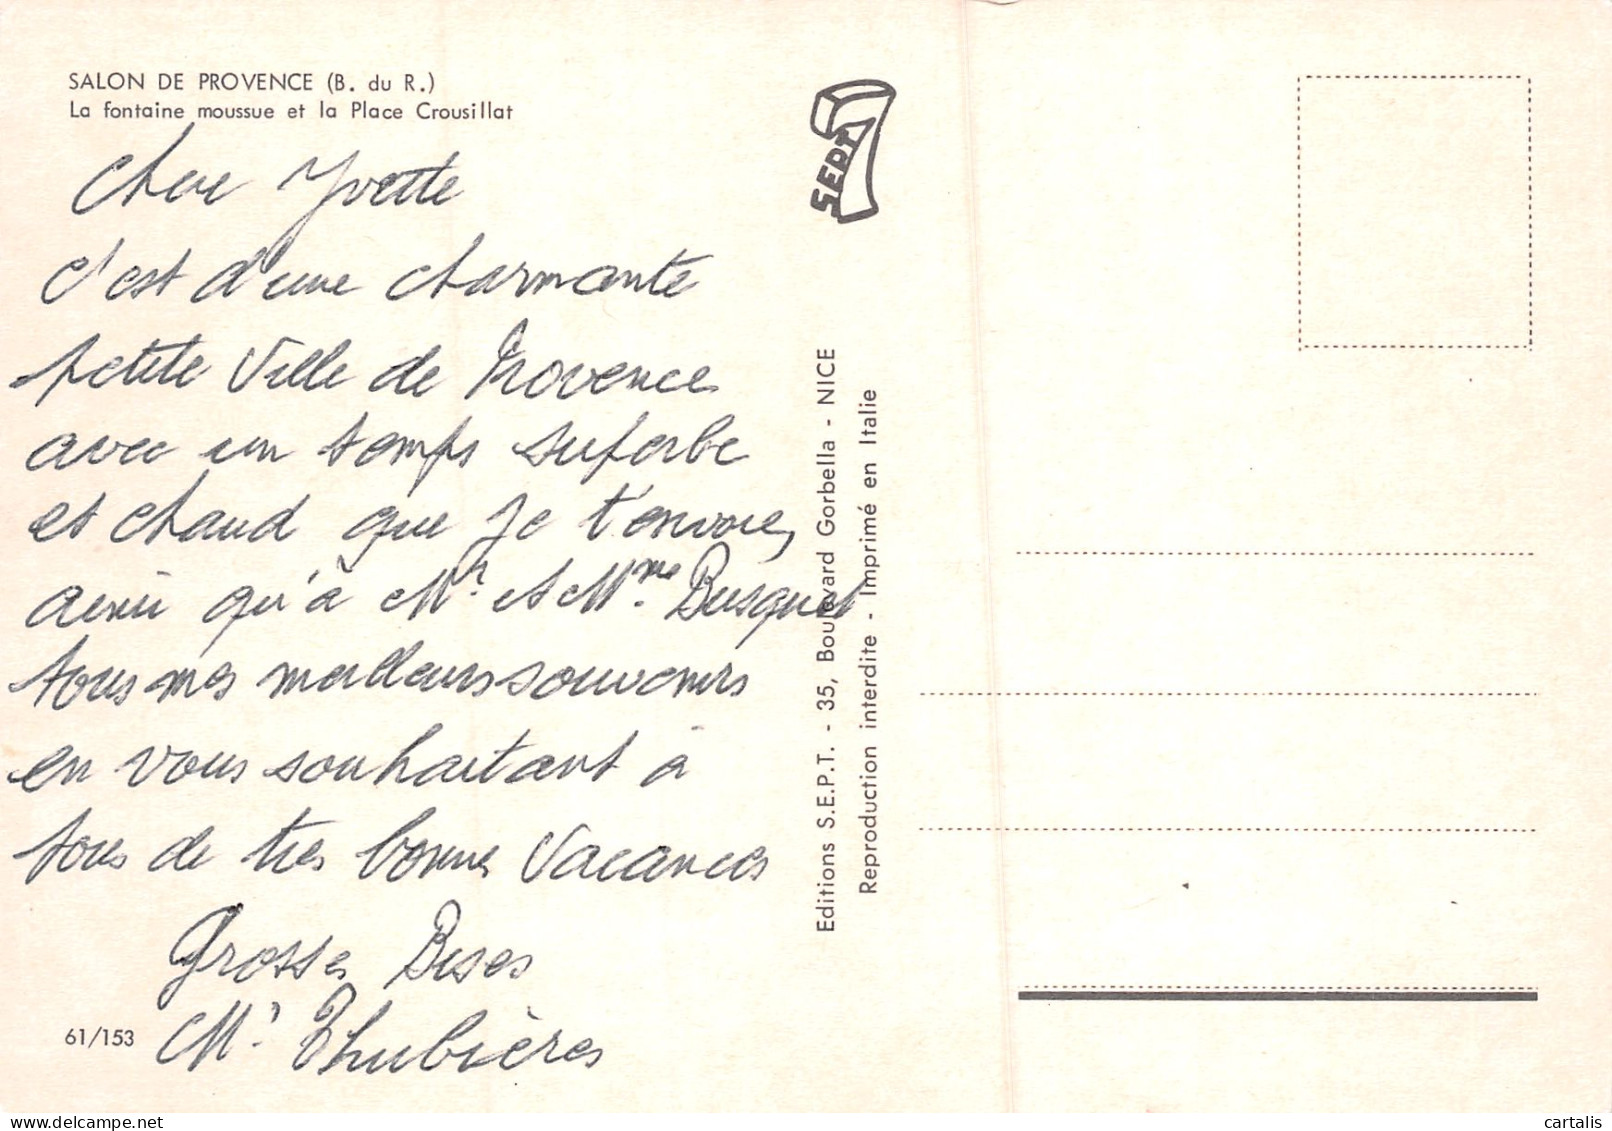 SALON DE PROVENCE (B. du R.)
La fontaine moussue et la Place Crousillat
Chere Yvette
c'est d'une charmante
petite Ville de Provence
avec un temps superbe
et chaud que je t'envoie,
ainsi qu'à Mr. et Mme. Busquet
tous mes meilleurs souvenirs
en vous souhaitant à
tous de tres bonnes Vacances
Grosses Bises
Mr. Thubières
61/153
SEPT
7
Editions S.E.P.T. - 35, Boulevard Gorbella - NICE
Reproduction interdite - Imprimé en Italie
https://www.delcampe.net
cartalis